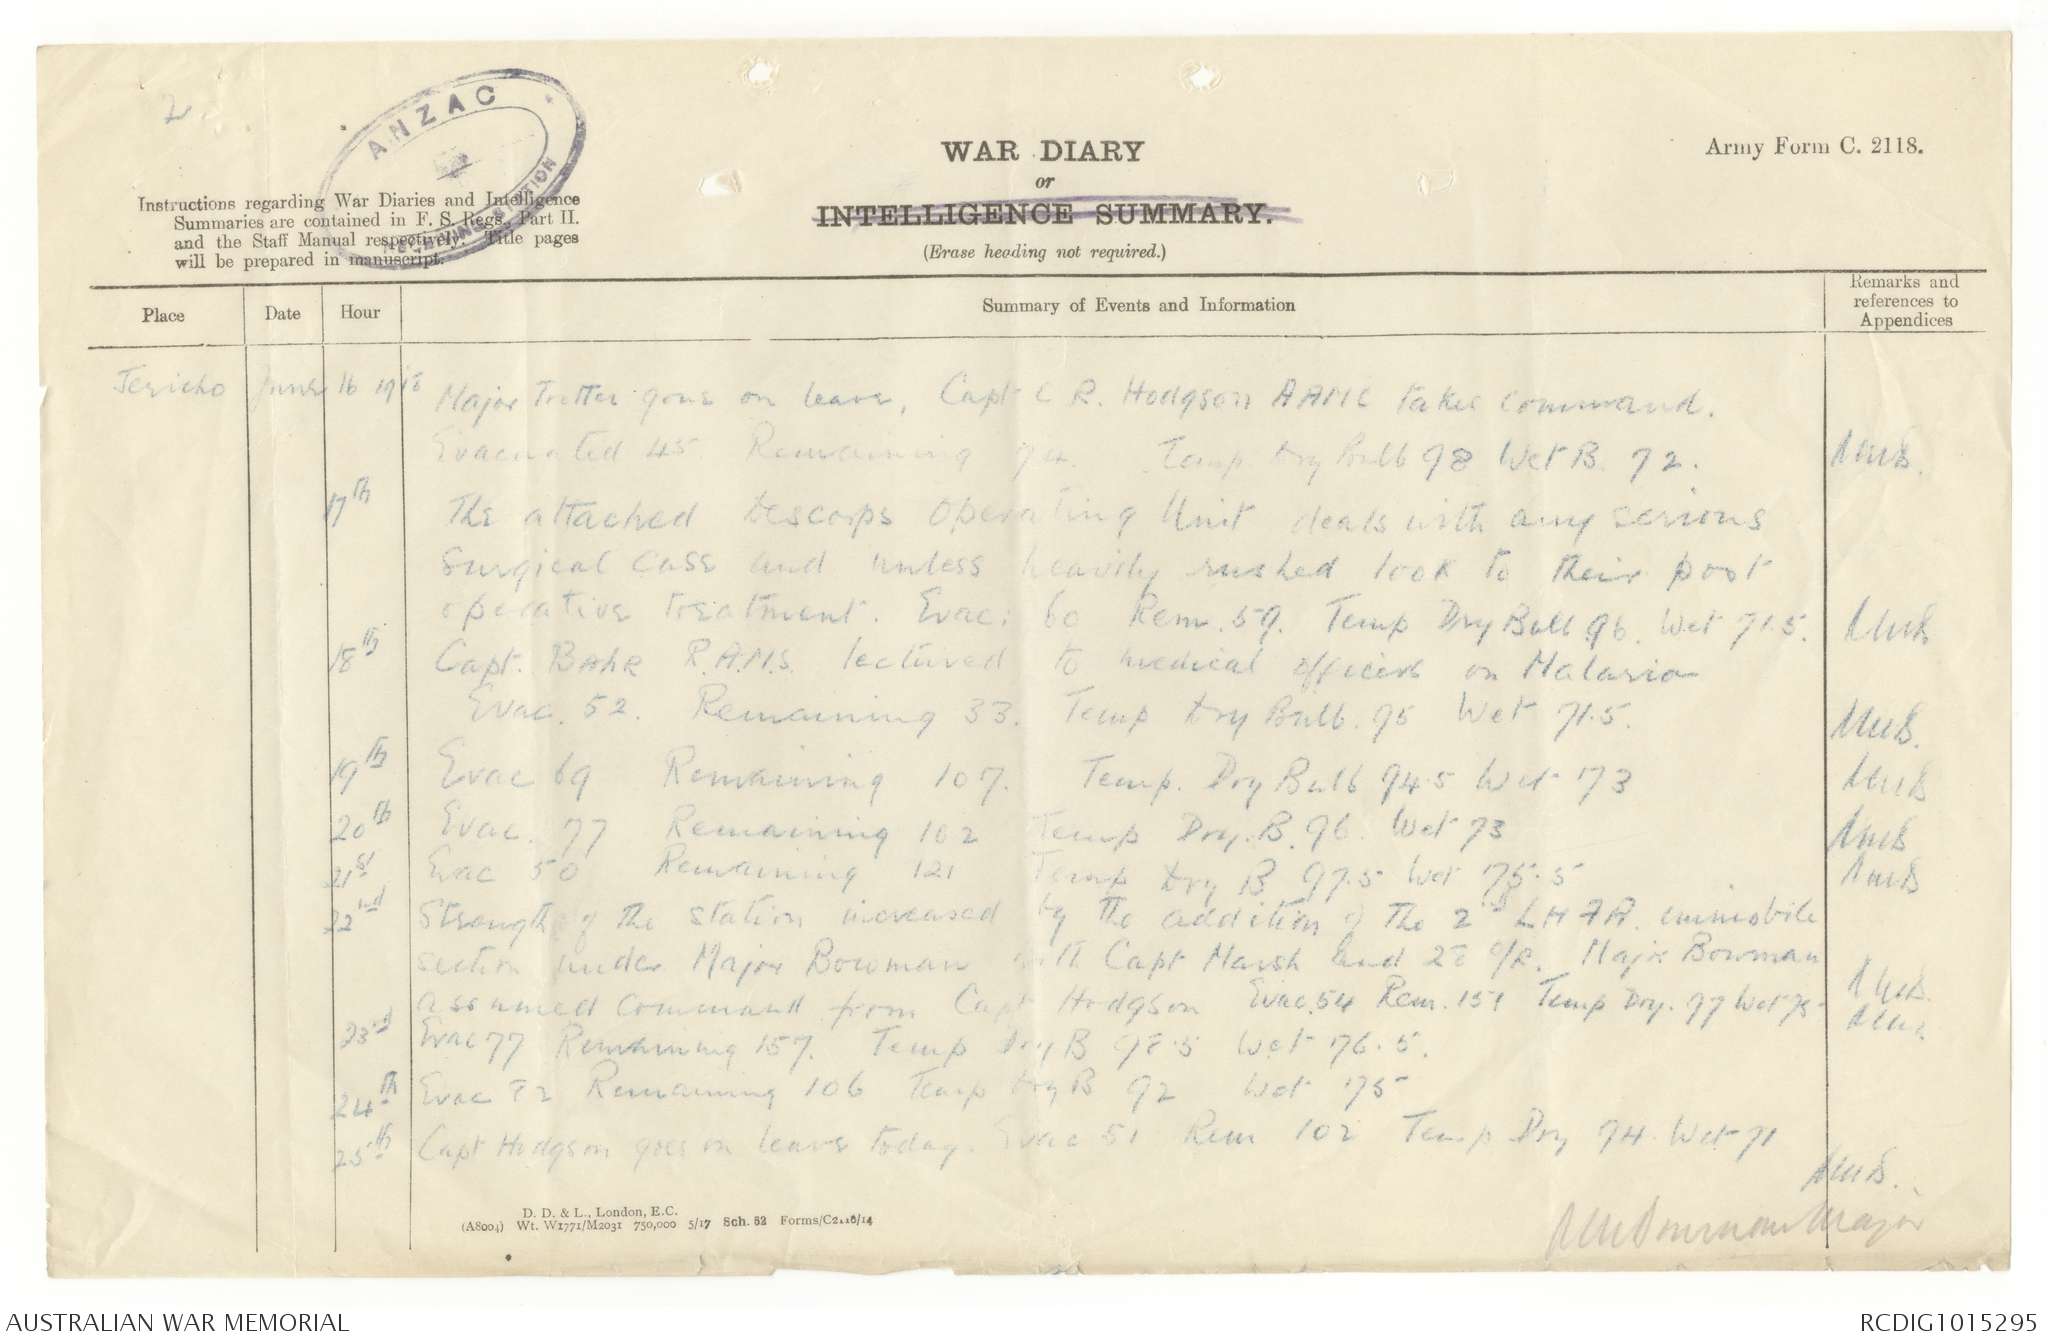 2
ANZAC
RECEIVING STATION
WAR DIARY
or
INTELLIGENCE SUMMARY.
(Erase heading not required.)
Army Form C. 2118.
Instructions regarding War Diaries and Intelligence
Summaries are contained in F. S. Regs., Part II.
and the Staff Manual respectively. Title pages
will be prepared in manuscript.
Place Date Hour Summary of Events and Information Remarks and references to Appendices
Jericho June 16 1918 Major Trotter goes on leave, Capt C R. Hodgson AAMC takes command.
Evacuated 45. Remaining 74. Temp. Dry Bulb 98 Wet B. 72.
17th The attached Descorps Operating Unit deals with any serious
surgical case and unless heavily rushed look to their post
operative treatment. Evac: 60 Rem. 59. Temp Dry Bulb 96. Wet 71.5.
18th Capt. Bahr R.A.M.S. lectured to medical officers on Malaria
Evac. 52. Remaining 33. Temp Dry Bulb. 95 Wet 71.5.
19th Evac 69 Remaining 107. Temp. Dry Bulb 94.5 Wet 73
20th Evac. 77 Remaining 102 Temp Dry. B. 96. Wet 73
21st Evac 50 Remaining 121 Temp Dry B 97.5 Wet 75.5
22nd Strength of the station increased by the addition of the 2nd L H F A. immobile
section under Major Bowman with Capt Marsh and 28 O/R. Major Bowman
assumed command from Capt Hodgson Evac. 54 Rem. 151 Temp Dry. 97 Wet 75
23rd Evac 77 Remaining 157. Temp Dry B 98.5 Wet 76.5.
24th Evac 82 Remaining 106 Temp Dry B 92 Wet 75
25th Capt Hodgson goes on leave today. Evac 51 Rem 102 Temp Dry 94. Wet 71
Bowman Major
D. D. & L., London, E.C.
(A8004) Wt. W1771/M2031 750,000 5/17 Sch. 52 Forms/C2118/14
AUSTRALIAN WAR MEMORIAL
RCDIG1015295